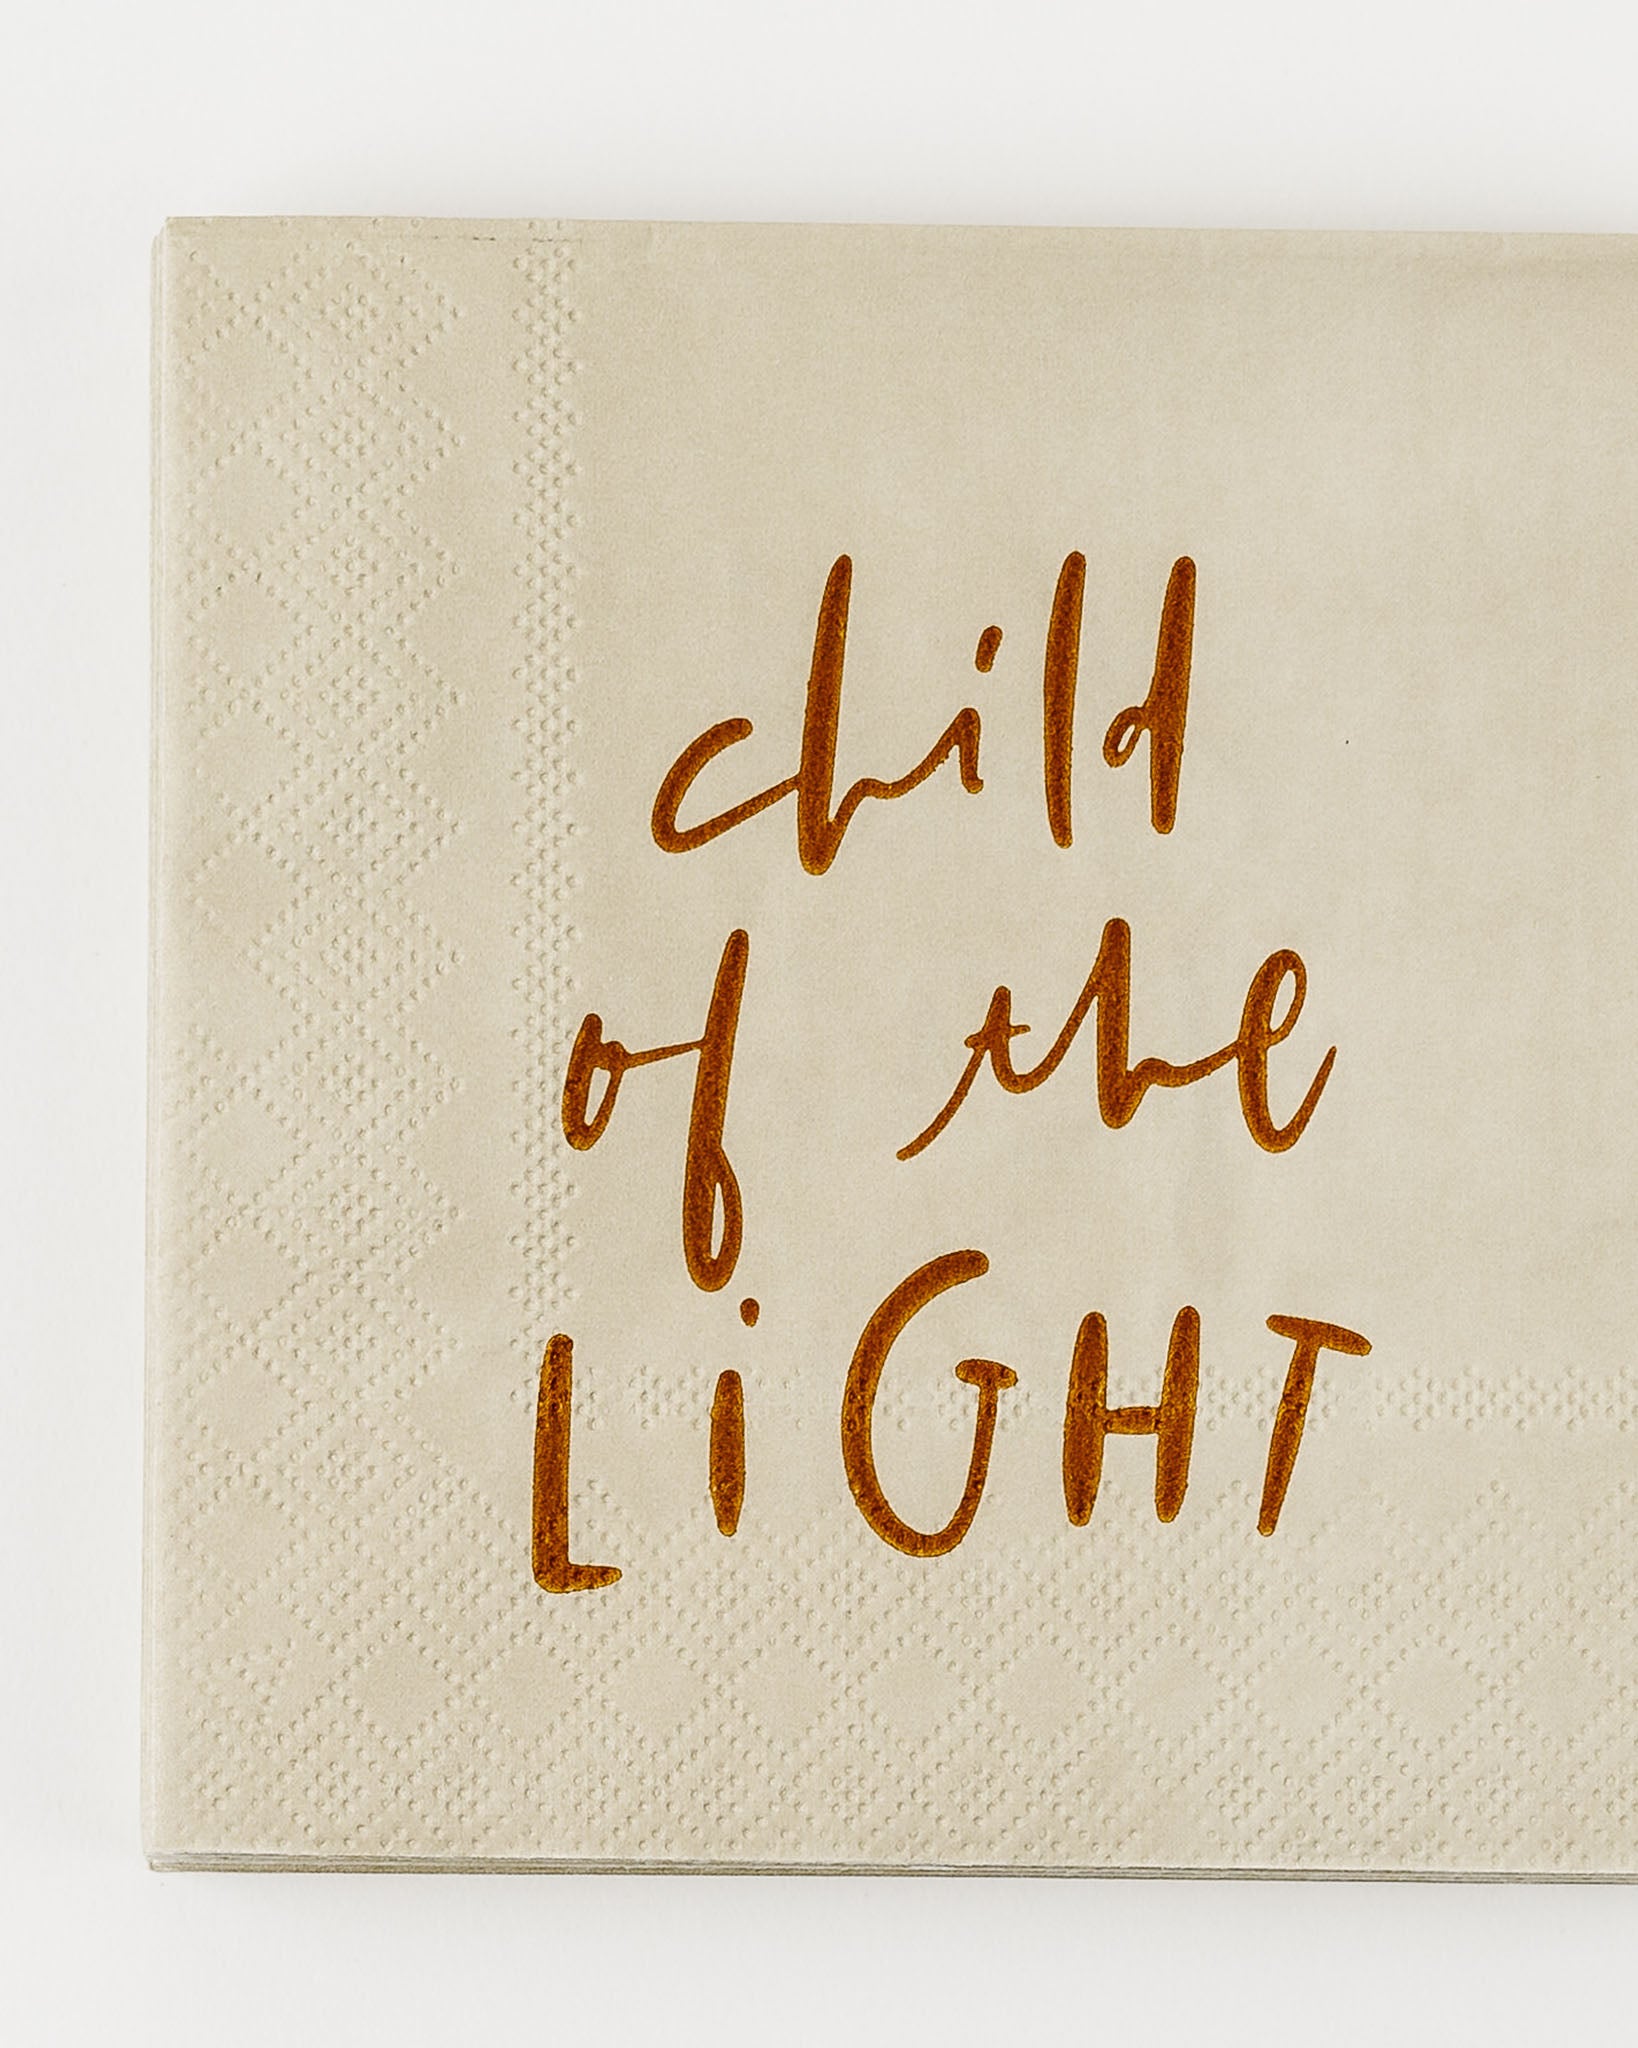 child
of the
LiGHT